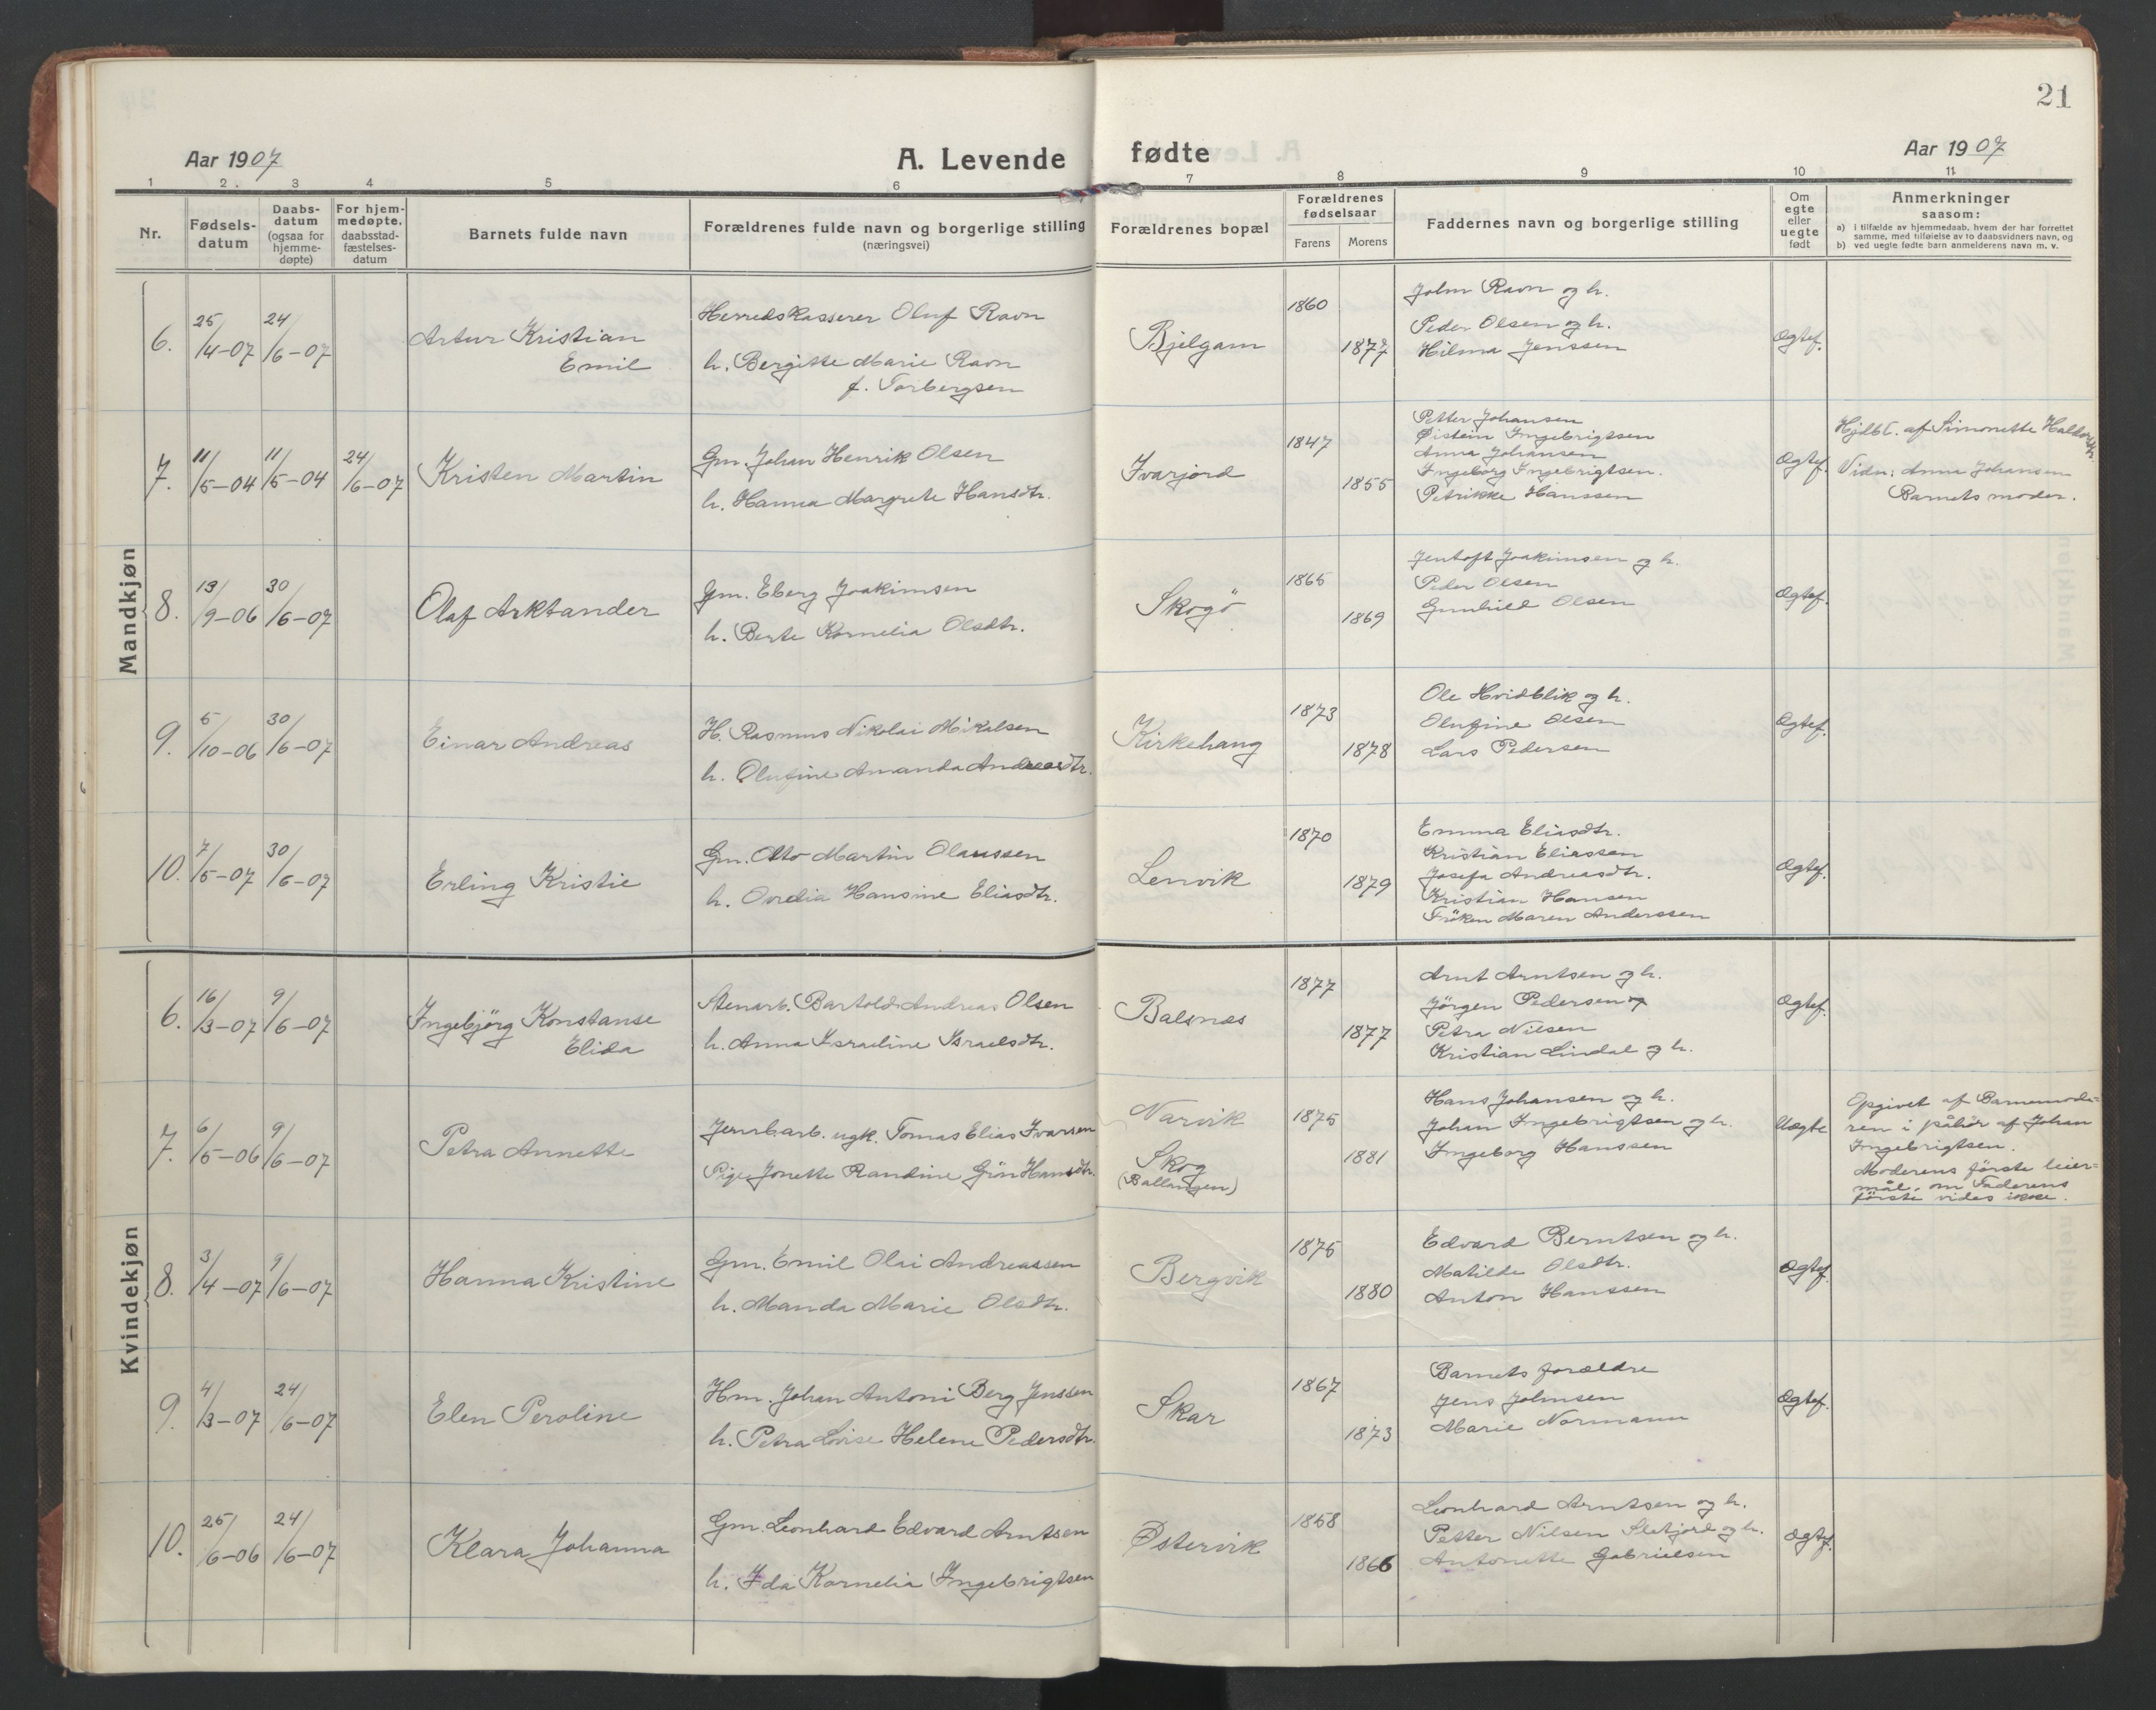 21
Aar 1907
A. Levende fødte
Aar 1907
1 2. 3 4 5 6 7 8 9 10 11
Nr.
Fødsels-
datum
Daabs-
datum
(ogsaa for
hjemme-
døpte)
For hjem-
medøpte,
daabsstad-
fæstelses-
datum
Barnets fulde navn
Forældrenes fulde navn og borgerlige stilling
(næringsvei)
Forældrenes bopæl
Forældrenes
fødselsaar
Farens Morens
Faddernes navn og borgerlige stilling
Om
egte
eller
uegte
født
Anmerkninger
saasom:
a) i tilfælde av hjemmedaab, hvem der har forrettet
samme, med tilføielse av to daabsvidners navn, og
b) ved uegte fødte barn anmelderens navn m. v.
Mandkjøn
6. 25/4-07 24/6-07
Artur Kristian
Emil
Herredskasserer Oluf Ravn
h. Bergitte Marie Ravn
f. Torbergsen
Bjelgam
1860
1877
John Ravn og h.
Peder Olsen og h.
Hilma Jenssen
Ægtef.
7. 11/5-04 11/5-04 24/6-07
Kristen Martin
Gm. Johan Henrik Olsen
h. Hanna Margrete Hansdtr.
Ivarjord
1847
1855
Petter Johansen
Øistein Ingebrigtsen
Anna Johansen
Ingeborg Ingebrigtsen.
Petrikke Hanssen
Ægtef.
Hjdbt. af Simonette
Vidn: Anna Johansen
Barnets moder.
8. 13/9-06 30/6-07
Olaf Arktander
Gm. Eberg Joakimsen
h. Berte Kornelia Olsdtr.
Skogö
1865
1869
Jentoft Joakimsen og h.
Peder Olsen
Gunhild Olsen
Ægtef.
9. 5/10-06 30/6-07
Einar Andreas
H. Rasmus Nikolai Mikalsen
h. Olufine Amanda Andreasdtr.
Kirkehaug
1873
1878
Ole Hvidblik og h.
Olufine Olsen
Lars Pedersen
Ægtef.
10. 7/5-07 30/6-07
Erling Kristie
Gm. Otto Martin Olaussen
h. Ovedia Hansine Eliasdtr.
Lenvik
1870
1879
Emma Eliasdtr.
Kristian Eliassen
Josefa Andreasdtr.
Kristian Hansen
Fröken Maren Anderssen
Ægtef.
Kvindekjøn
6. 16/3-07 9/6-07
Ingebjörg Konstanse
Elida
Stenarb. Bartold Andreas Olsen
h. Anna Israeline Israelsdtr.
Balsnes
1877
1877
Arnt Arntsen og h.
Jörgen Pedersen og
Petra Nilsen
Kristian Lindal og h.
Ægtef.
7. 6/5-06 9/6-07
Petra Annette
Jernbarb. ugk. Tomas Elias Ivarsen
Pige Jonette Randine Grön Hansdtr.
Narvik
Skog
(Ballangen)
1875
1881
Hans Johansen og h.
Johan Ingebrigtsen og h.
Ingeborg Hanssen
Uægte
Opgivet af Barnemode-
ren i påhör af Johan
Ingebrigtsen.
Moderens förste leier-
mål, om Faderens
förste vides ikke.
8. 3/4-07 9/6-07
Hanna Kristine
Gm. Emil Olai Andreassen
h. Manda Marie Olsdtr.
Bergvik
1875
1880
Edvard Berntsen og h.
Matilde Olsdtr.
Anton Hanssen
Ægtef.
9. 4/3-07 24/6-07
Elen Peroline
Hm. Johan Antoni Berg Jenssen
h. Petra Lovise Helene Pedersdtr.
Skar
1867
1873
Barnets forældre
Jens Johnsen
Marie Normann
Ægtef.
10. 25/6-06 24/6-07
Klara Johanna
Gm. Leonhard Edvard Arntsen
h. Ida Kornelia Ingebrigtsen
Østervik
1858
1866
Leonhard Arntsen og h.
Petter Nilsen Sletjord og h.
Antonette Gabrielsen
Ægtef.